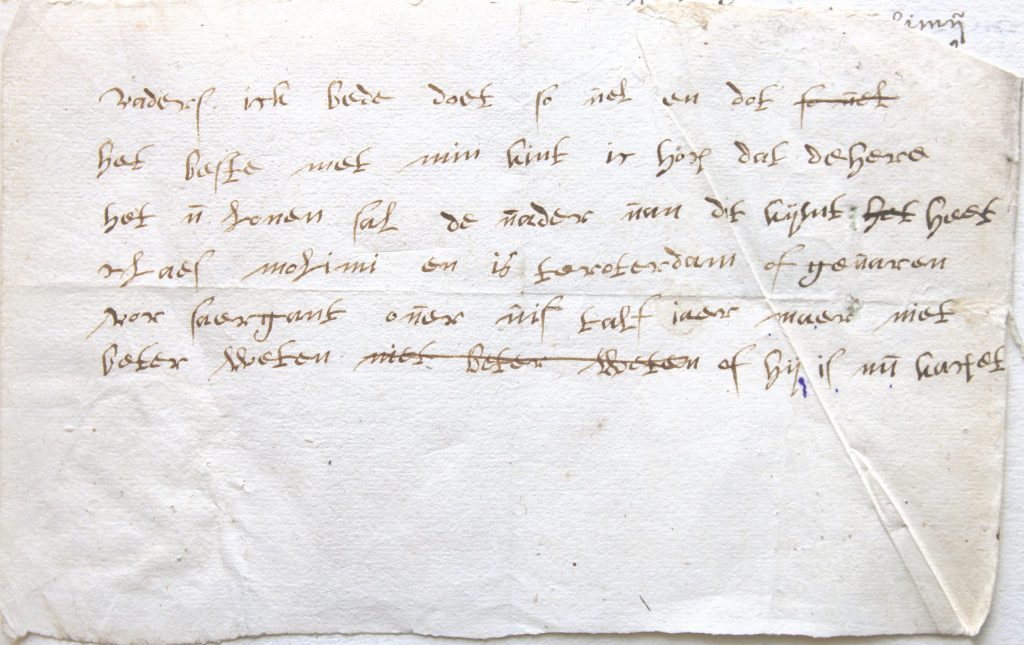 vaders ick bede doet so vel en dot so vel
het beste met min kint ic hop dat de here
het u lonen sal de vader van dit kijnt het heet
claes molimi en is teroterdam of gevaren
vor saergant over viif talf iaer maer niet
beter weten niet beter weten of hij is nu